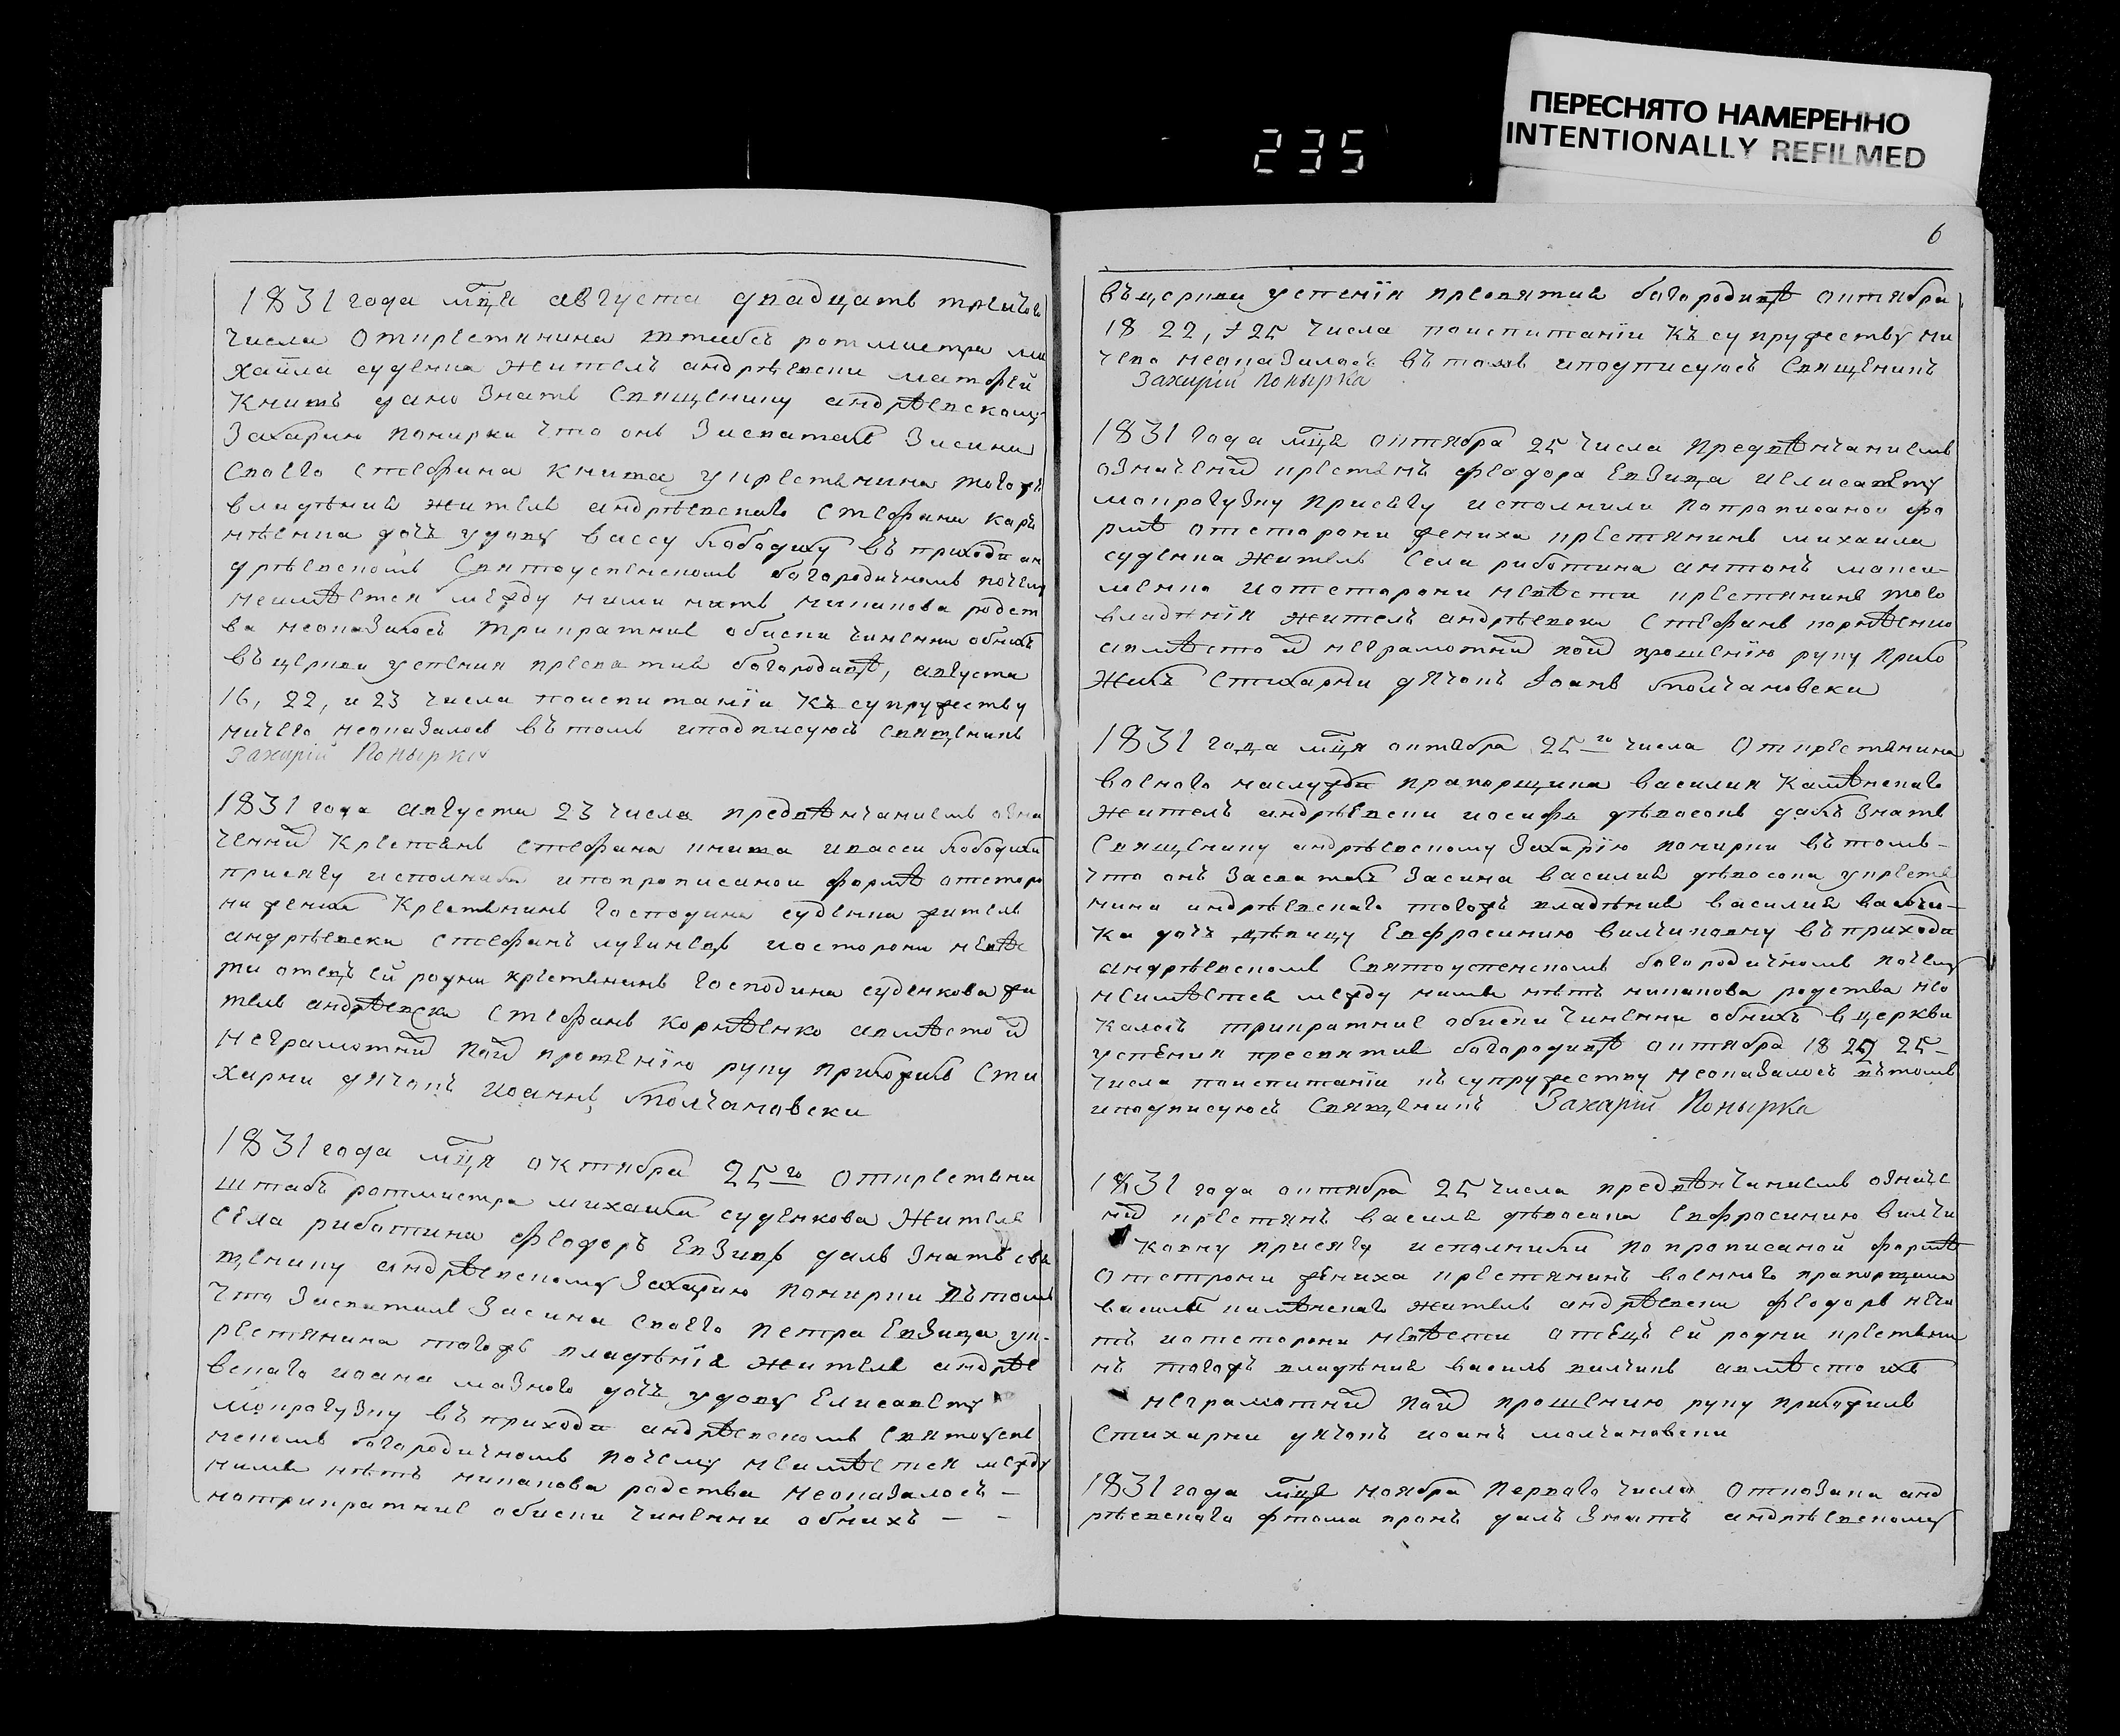 ПЕРЕСНЯТО НАМЕРЕННО
INTENTIONALLY REFILMED
235
1831 года мця августа двадцать третього
числа Открестянина штабсъ ротмистра ми
хаила суденка житель андрѣевки матфей
Книшъ дано знать Священику андрѣевскому
Захарию Понирки что онъ Засватавъ Засина
Своего Стефана Книша укрестянина тогожъ
владѣния жителя андрѣевскаго Стефана Кор
нѣенка дочь удову вассу Кободиху въ приходи ан
дрѣевскомъ Святоуспенскомъ богородичномъ почему
неимѣется между ними нитъ никакова родст
ва неоказалось трикратние обиски чиненни обнихъ
въ церкви успения пресвятия богородицѣ, августа
16, 22, и 23 числа поиспитанїи Къ супружеству
ничего неоказалось въ томъ иподписуюсь священикъ
Захарій Понырка
1831 года августа 23 числа предвѣнчаниемъ озна
ченнй Крестянъ стефана книша ивасси Кободихи
присягу исполнили ипопрописаной формѣ отсторо
ни жениха Крестянинъ Господина суденка житель
андрѣевски стефанъ иосторони невѣс
ти отецъ ей родни крестянинъ господина суденкова жи
тель андрѣевски Стефанъ Корнѣенко авмѣсто й
неграмотнй пой прошенїю руку приложилъ Сти
харни дячокъ Иоаннъ Молчановски
1831 года мця октября 25го Открестяни
штабъ ротмистра михаила суденкова Житель
села рикотина федоръ Евзикъ далъ знать свя
щенику андрѣевскому Захарию Понирки въ томъ
что Засватилъ Засина своего Петра Евзика ук-
рестянина тогожъ владѣнїя жителя андрѣе
вскаго иоана мазного дочь удову Елисавету
мокрогузку въ приходи андрѣевскомъ Святоуспе
нскомъ богородичномъ почему неимѣется между
ними нѣтъ никакова родства неоказалось —
нотрикратние обиски чиненни обнихъ — —
6
въцеркви успенїя пресвятия богородицѣ октября
18 22, и 25 числа поиспитанїи Къ супружеству ни
чего неоказалось въ томъ иподписуюсь Священикъ
Захарій Понырка
1831 года мця октября 25 числа Предвѣнчаниемъ
означеннй крестянъ федора Евзика иелисавету
мокрогузку присягу исполнили попрописаной фо
рмѣ отсторони жениха крестянинъ михаила
суденка житель села рикотина антонъ макси-
менко иотсторони невѣсти крестянинъ того
владѣнїя житель андрѣевки Стефанъ корнѣенко
авмѣсто й неграмотнй пой прошенїю руку прило
жилъ Стихарни дячокъ Іоанъ Молчановски
1831 года мця октября 25го числа Открестянина
военого наслужби прапорщика василия Камѣнскаго
житель андрѣевски иосифъ дѣвосонъ далъ знать
Священику андрѣевскому Захарїю понирки въ томъ-
что онъ Засваталъ Засина василия дѣвосона укрестя
нина андрѣевскаго тогожъ владѣния василия вилчи-
ка дочь дѣвицу Евфросинию вилчиковну въ приходи
андрѣевскомъ Святоуспенскомъ богородичномъ почему
неимѣется между ними нѣтъ никакова родства нео
казалось трикратние обиски чиненни обнихъ в церкви
успения пресвятия богородицѣ октября 18 22 25-
числа поиспитанїи къ супружеству неоказалось въ томъ
иподписуюсь Священикъ Захарій Понырка
1831 года октября 25 числа предвѣнчаниемъ означе
нй крестянъ василя дѣвосона Евфросинию вилчи
ковну присягу исполнили попрописаной формѣ
Отстрони жениха крестянинъ военнаго прапорщика
василя камѣнскаго житель андрѣевски федоръ неча
тъ иотсторони невѣсти отецъ ей родни крестяни
нъ тогожъ владѣния василь вилчикъ авмѣсто ихъ
неграмотнй пой прошению руку приложилъ
Стихарни дячокъ иоанъ молчановски
1831 года мця ноября Перваго числа Откозака анд
рѣевскаго фтома кронъ далъ знать андрѣевскому